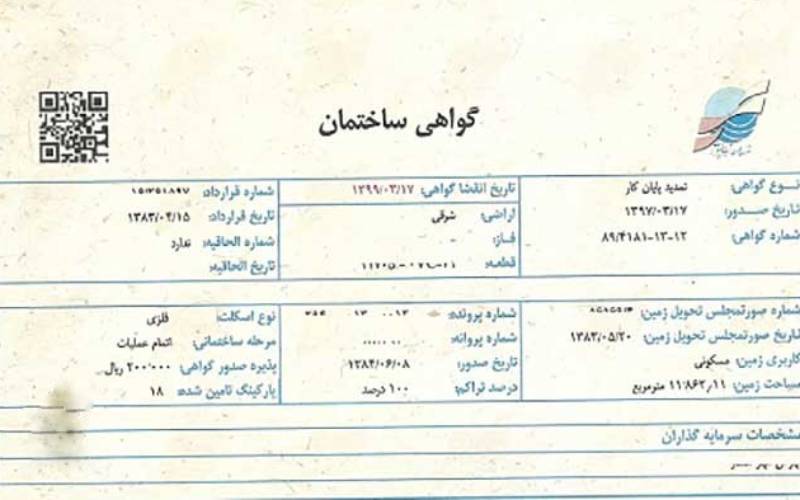 گواهی ساختمان
نوع گواهی: تمدید پایان کار
تاریخ صدور: ۱۳۹۷/۰۳/۱۷
شماره گواهی: ۸۹/۴۱۸۱-۱۳-۱۲
تاریخ انقضا گواهی: ۱۳۹۹/۰۳/۱۷
اراضی: شرقی
فاز: -
قطعه:
شماره قرارداد:
تاریخ قرارداد: ۱۳۸۳/۰۴/۱۵
شماره الحاقیه: ندارد
تاریخ الحاقیه:
شماره صورتمجلس تحویل زمین:
تاریخ صورتمجلس تحویل زمین: ۱۳۸۳/۰۵/۲۰
کاربری زمین: مسکونی
مساحت زمین: ۱۱٬۸۶۲٫۱۱ مترمربع
شماره پرونده:
شماره پروانه:
تاریخ صدور: ۱۳۸۴/۰۶/۰۸
درصد تراکم: ۱۰۰ درصد
نوع اسکلت: فلزی
مرحله ساختمانی: اتمام عملیات
پذیره صدور گواهی: ۲۰۰٬۰۰۰ ریال
پارکینگ تامین شده: ۱۸
مشخصات سرمایه گذاران